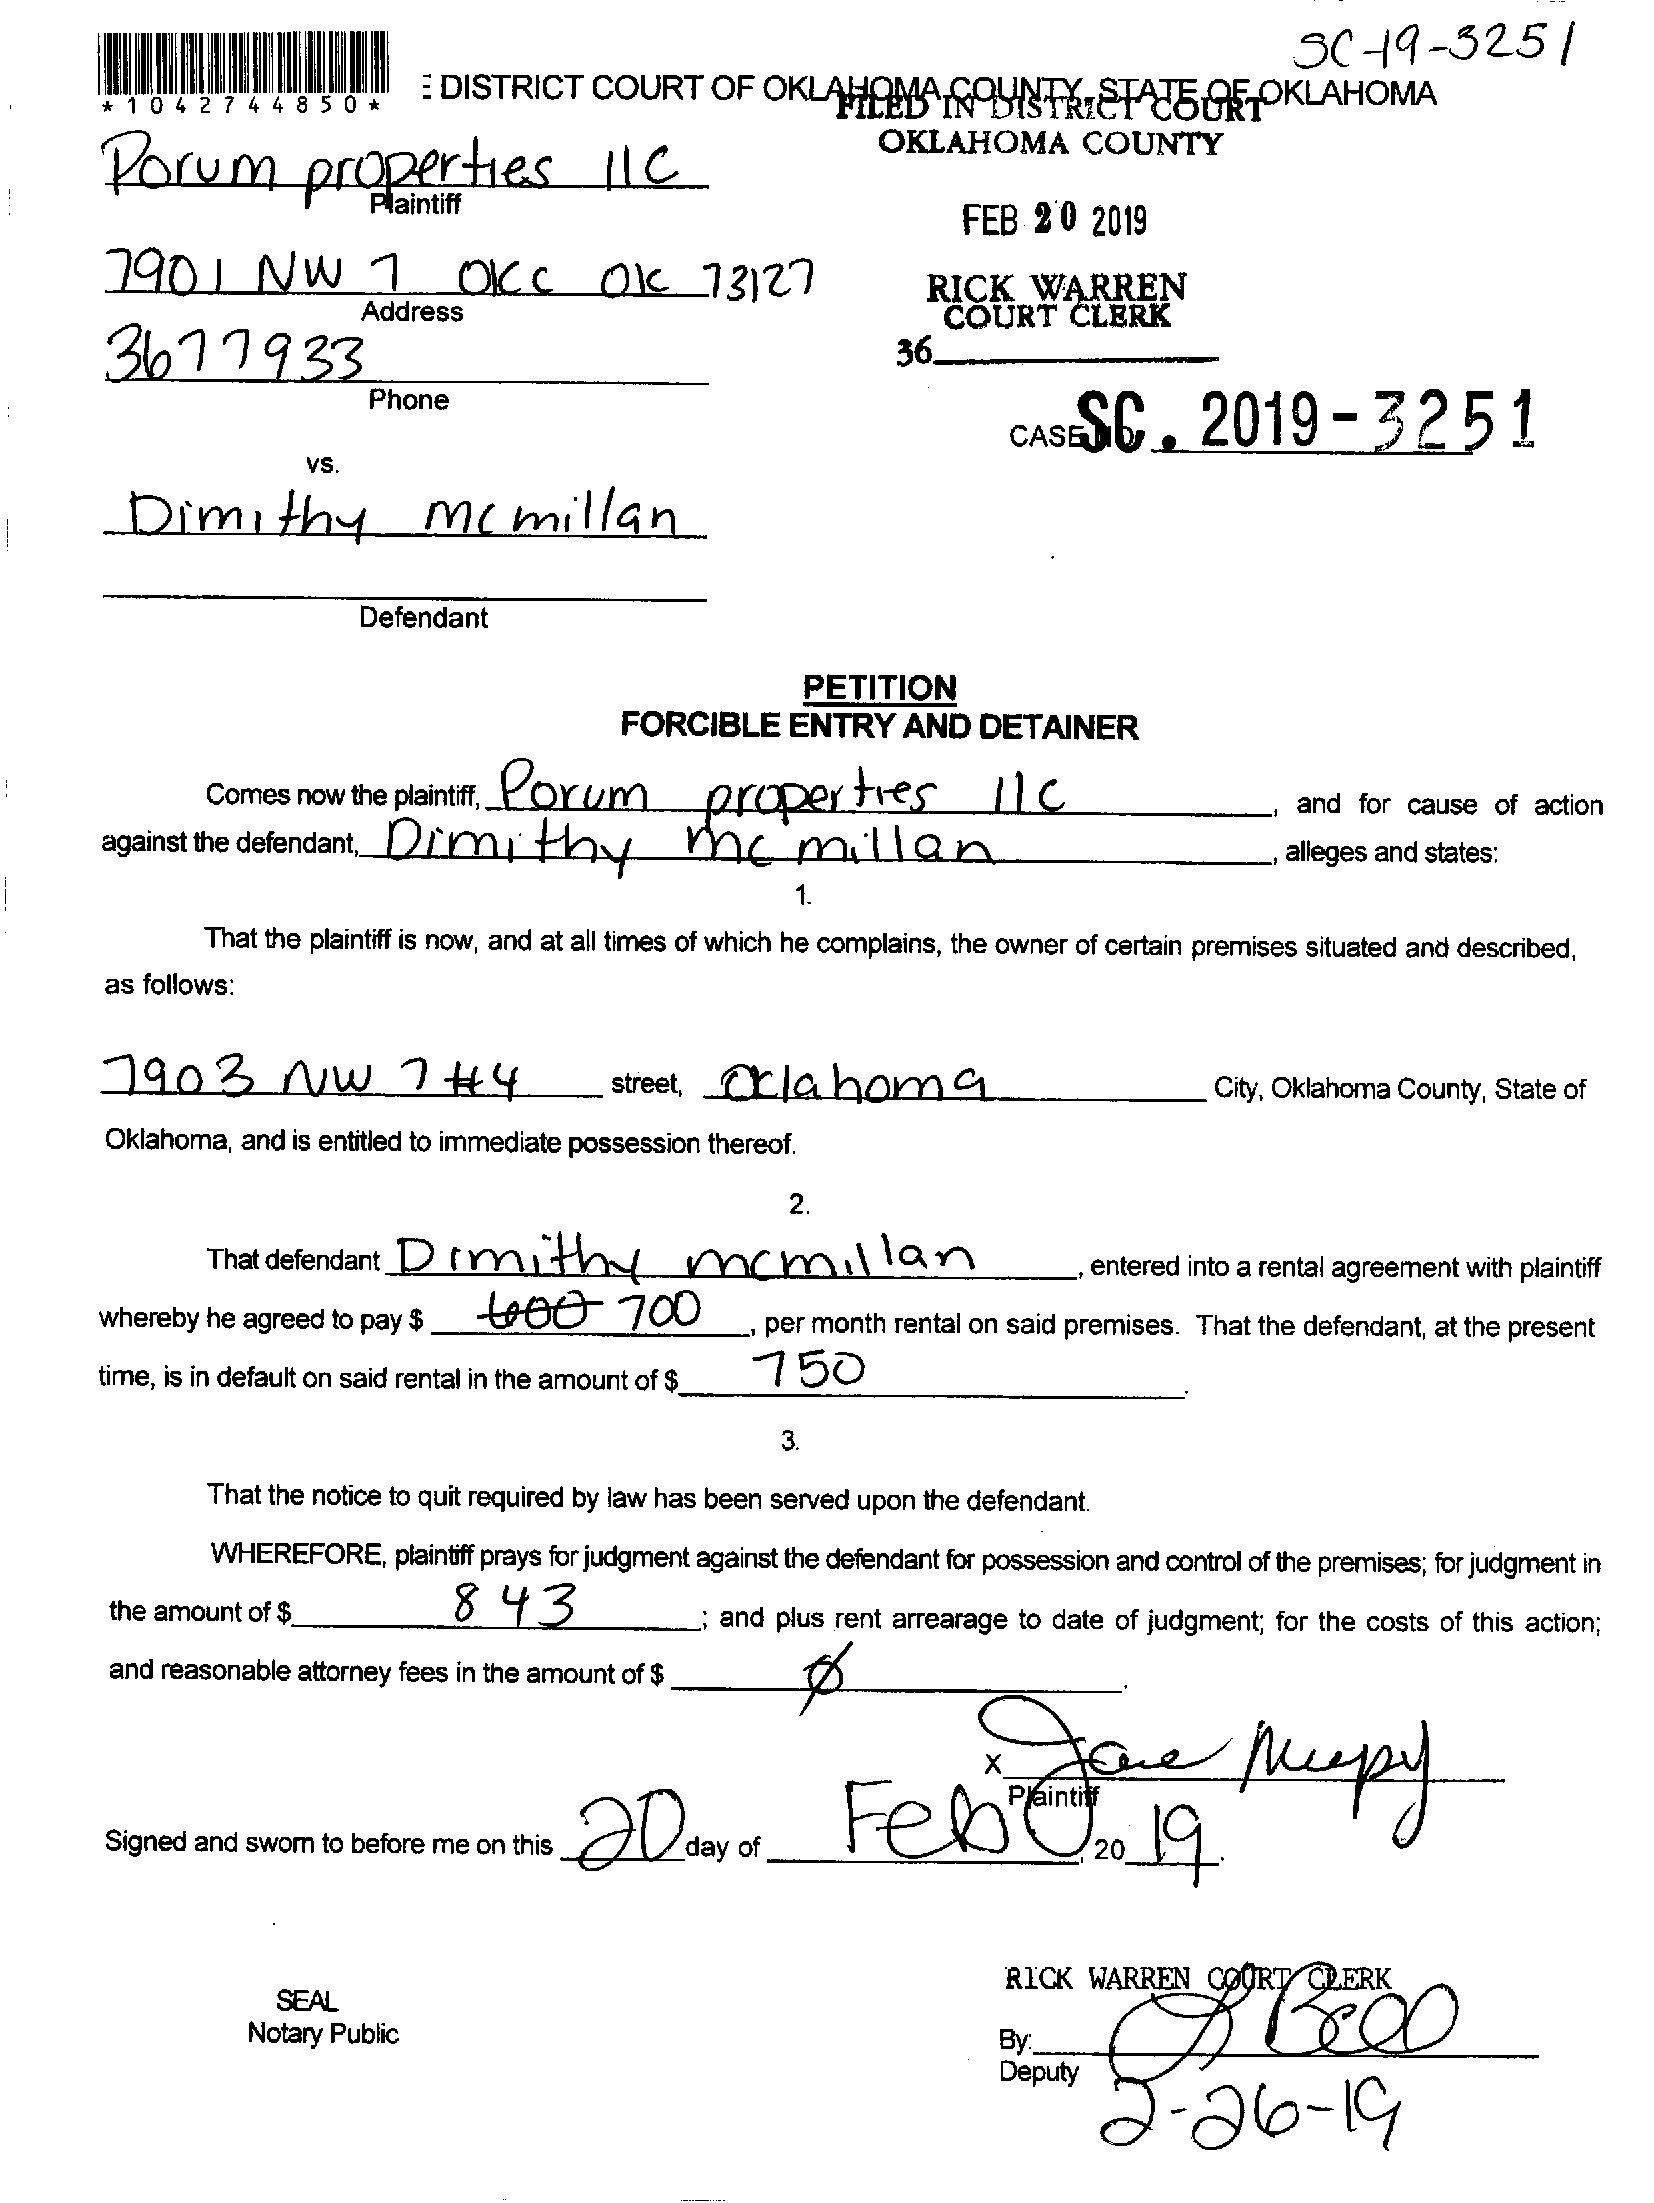 SC-19-3251
*1042744850*
E DISTRICT COURT OF OKLAHOMA COUNTY, STATE OF OKLAHOMA
FILED IN DISTRICT COURT
OKLAHOMA COUNTY
Porum properties llc
Plaintiff
FEB 20 2019
7901 NW 7 OKC OK 73127
Address
RICK WARREN
COURT CLERK
3677933
Phone
36
CASE SC. 2019-3251
vs.
Dimithy mcmillan
Defendant
PETITION
FORCIBLE ENTRY AND DETAINER
Comes now the plaintiff, Porum properties llc, and for cause of action
against the defendant, Dimithy mc millan, alleges and states:
1.
That the plaintiff is now, and at all times of which he complains, the owner of certain premises situated and described,
as follows:
7903 NW 7 #4 street, Oklahoma City, Oklahoma County, State of
Oklahoma, and is entitled to immediate possession thereof.
2.
That defendant Dimithy mcmillan, entered into a rental agreement with plaintiff
whereby he agreed to pay $ 600 700, per month rental on said premises. That the defendant, at the present
time, is in default on said rental in the amount of $ 750.
3.
That the notice to quit required by law has been served upon the defendant.
WHEREFORE, plaintiff prays for judgment against the defendant for possession and control of the premises; for judgment in
the amount of $ 843; and plus rent arrearage to date of judgment; for the costs of this action;
and reasonable attorney fees in the amount of $ ∅.
X Jane
Plaintiff
Signed and sworn to before me on this 20 day of Feb, 20 19.
RICK WARREN COURT CLERK
SEAL
Notary Public
By: L Bell
Deputy
2-26-19